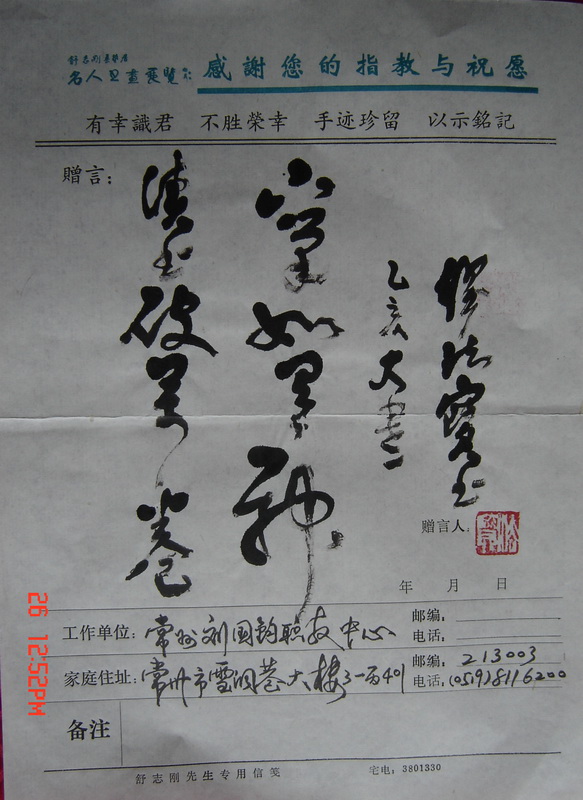 感謝您的指教与祝愿
有幸識君 不胜榮幸 手迹珍留 以示銘記
赠言：
读书破万卷
下笔如有神
乙亥大暑
赠言人：
年 月 日
工作单位：常州刘国钧职教中心
邮编：
电话：
家庭住址：常州市雪洞巷大楼
邮编：213003
电话：(0519)8116200
备注
舒志刚先生专用信笺 宅电：3801330
26 12:52PM